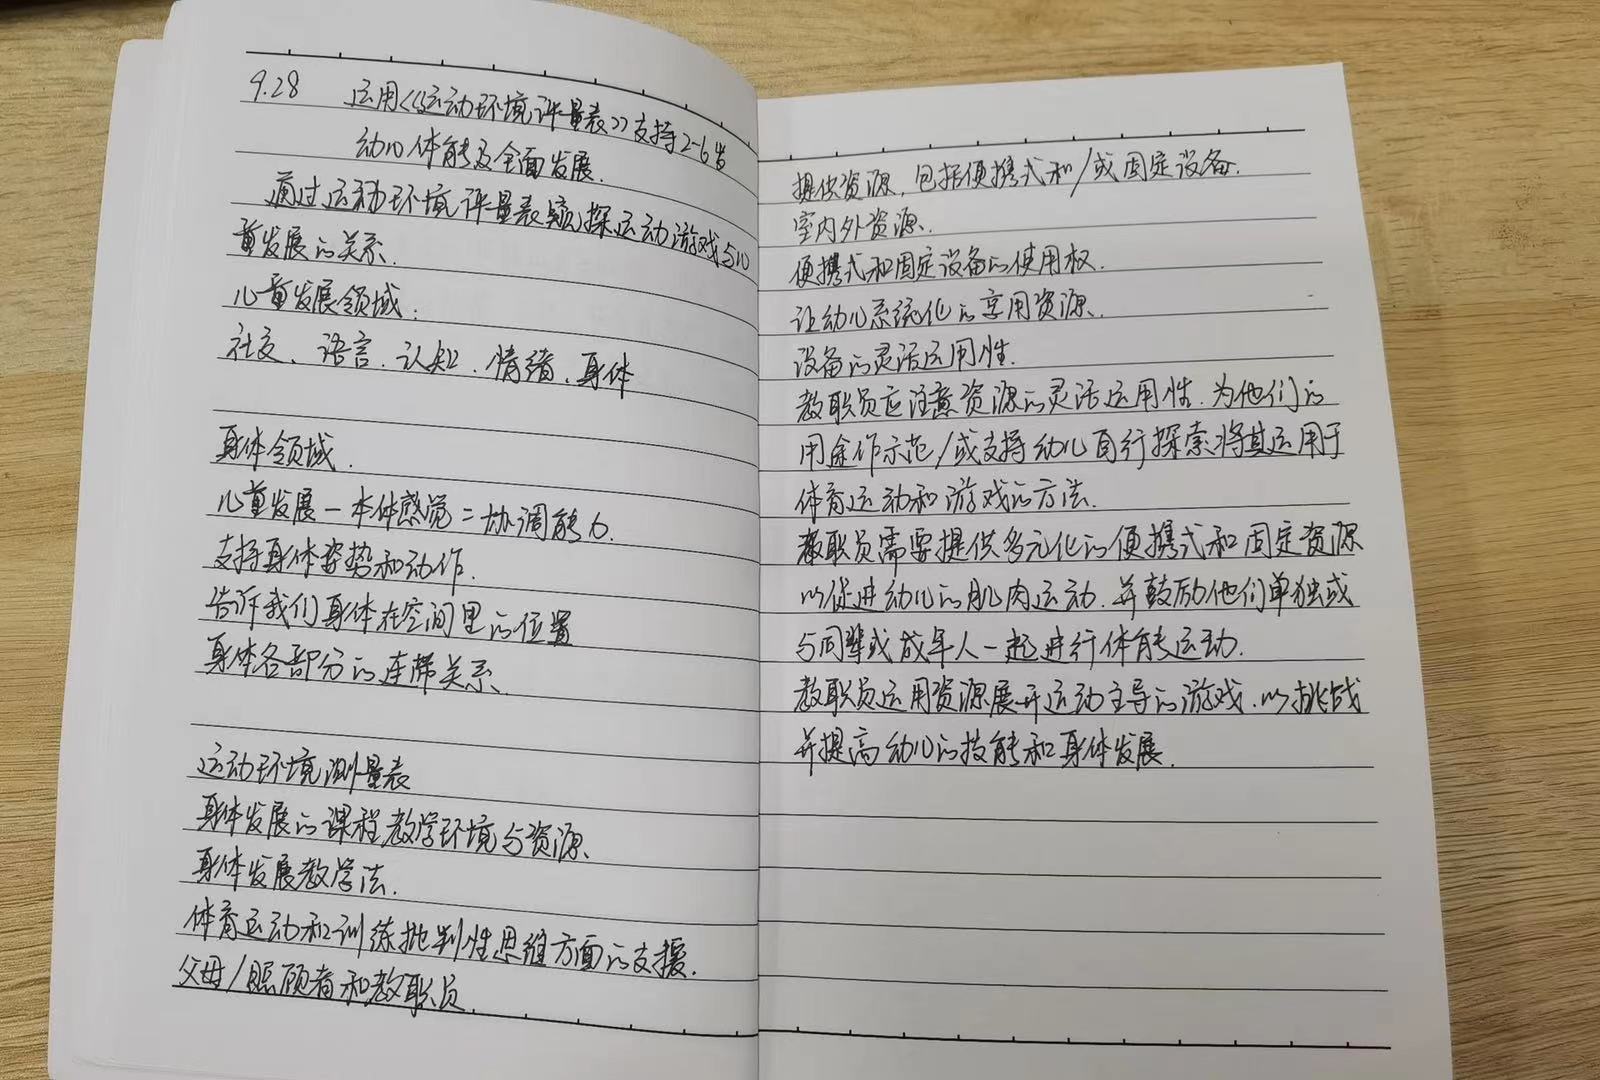 9.28 运用《运动环境评量表》支持2-6岁
幼儿体能及全面发展.
通过运动环境评量表窥探运动游戏与儿
童发展的关系.
儿童发展领域:
社交、语言、认知、情绪、身体
身体领域.
儿童发展—本体感觉=协调能力.
支持身体姿势和动作.
告诉我们身体在空间里的位置
身体各部分的连带关系、
运动环境测量表
身体发展的课程教学环境与资源、
身体发展教学法.
体育运动和训练批判性思维方面的支援.
父母/照顾者和教职员
提供资源,包括便携式和/或固定设备.
室内外资源、
便携式和固定设备的使用权.
让幼儿系统化的享用资源、
设备的灵活运用性.
教职员应注意资源的灵活运用性.为他们的
用途作示范/或支持幼儿自行探索将其运用于
体育运动和游戏的方法.
教职员需要提供多元化的便携式和固定资源
以促进幼儿的肌肉运动.并鼓励他们单独或
与同辈或成年人一起进行体能运动.
教职员运用资源展开运动主导的游戏.以挑战
并提高幼儿的技能和身体发展.